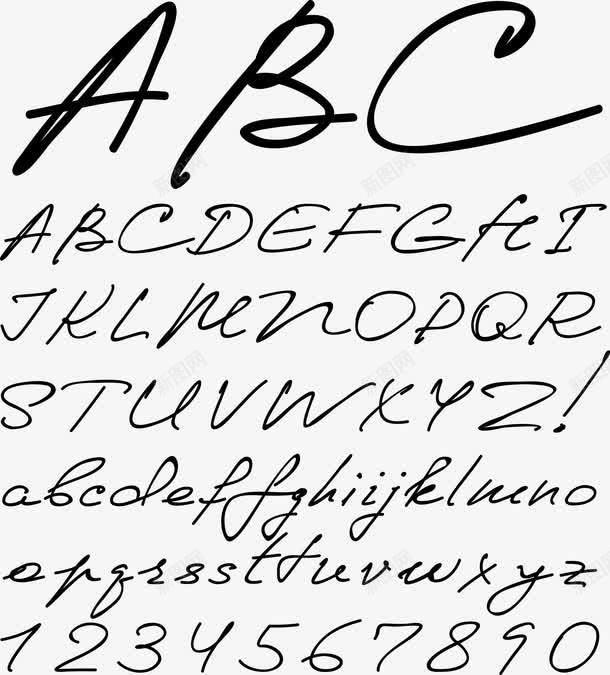 ABC
ABCDEFGHI
JKLMNOPQR
STUVWXYZ!
abcdeffghiijklmno
opqrsstttuvwxyz
1234567890